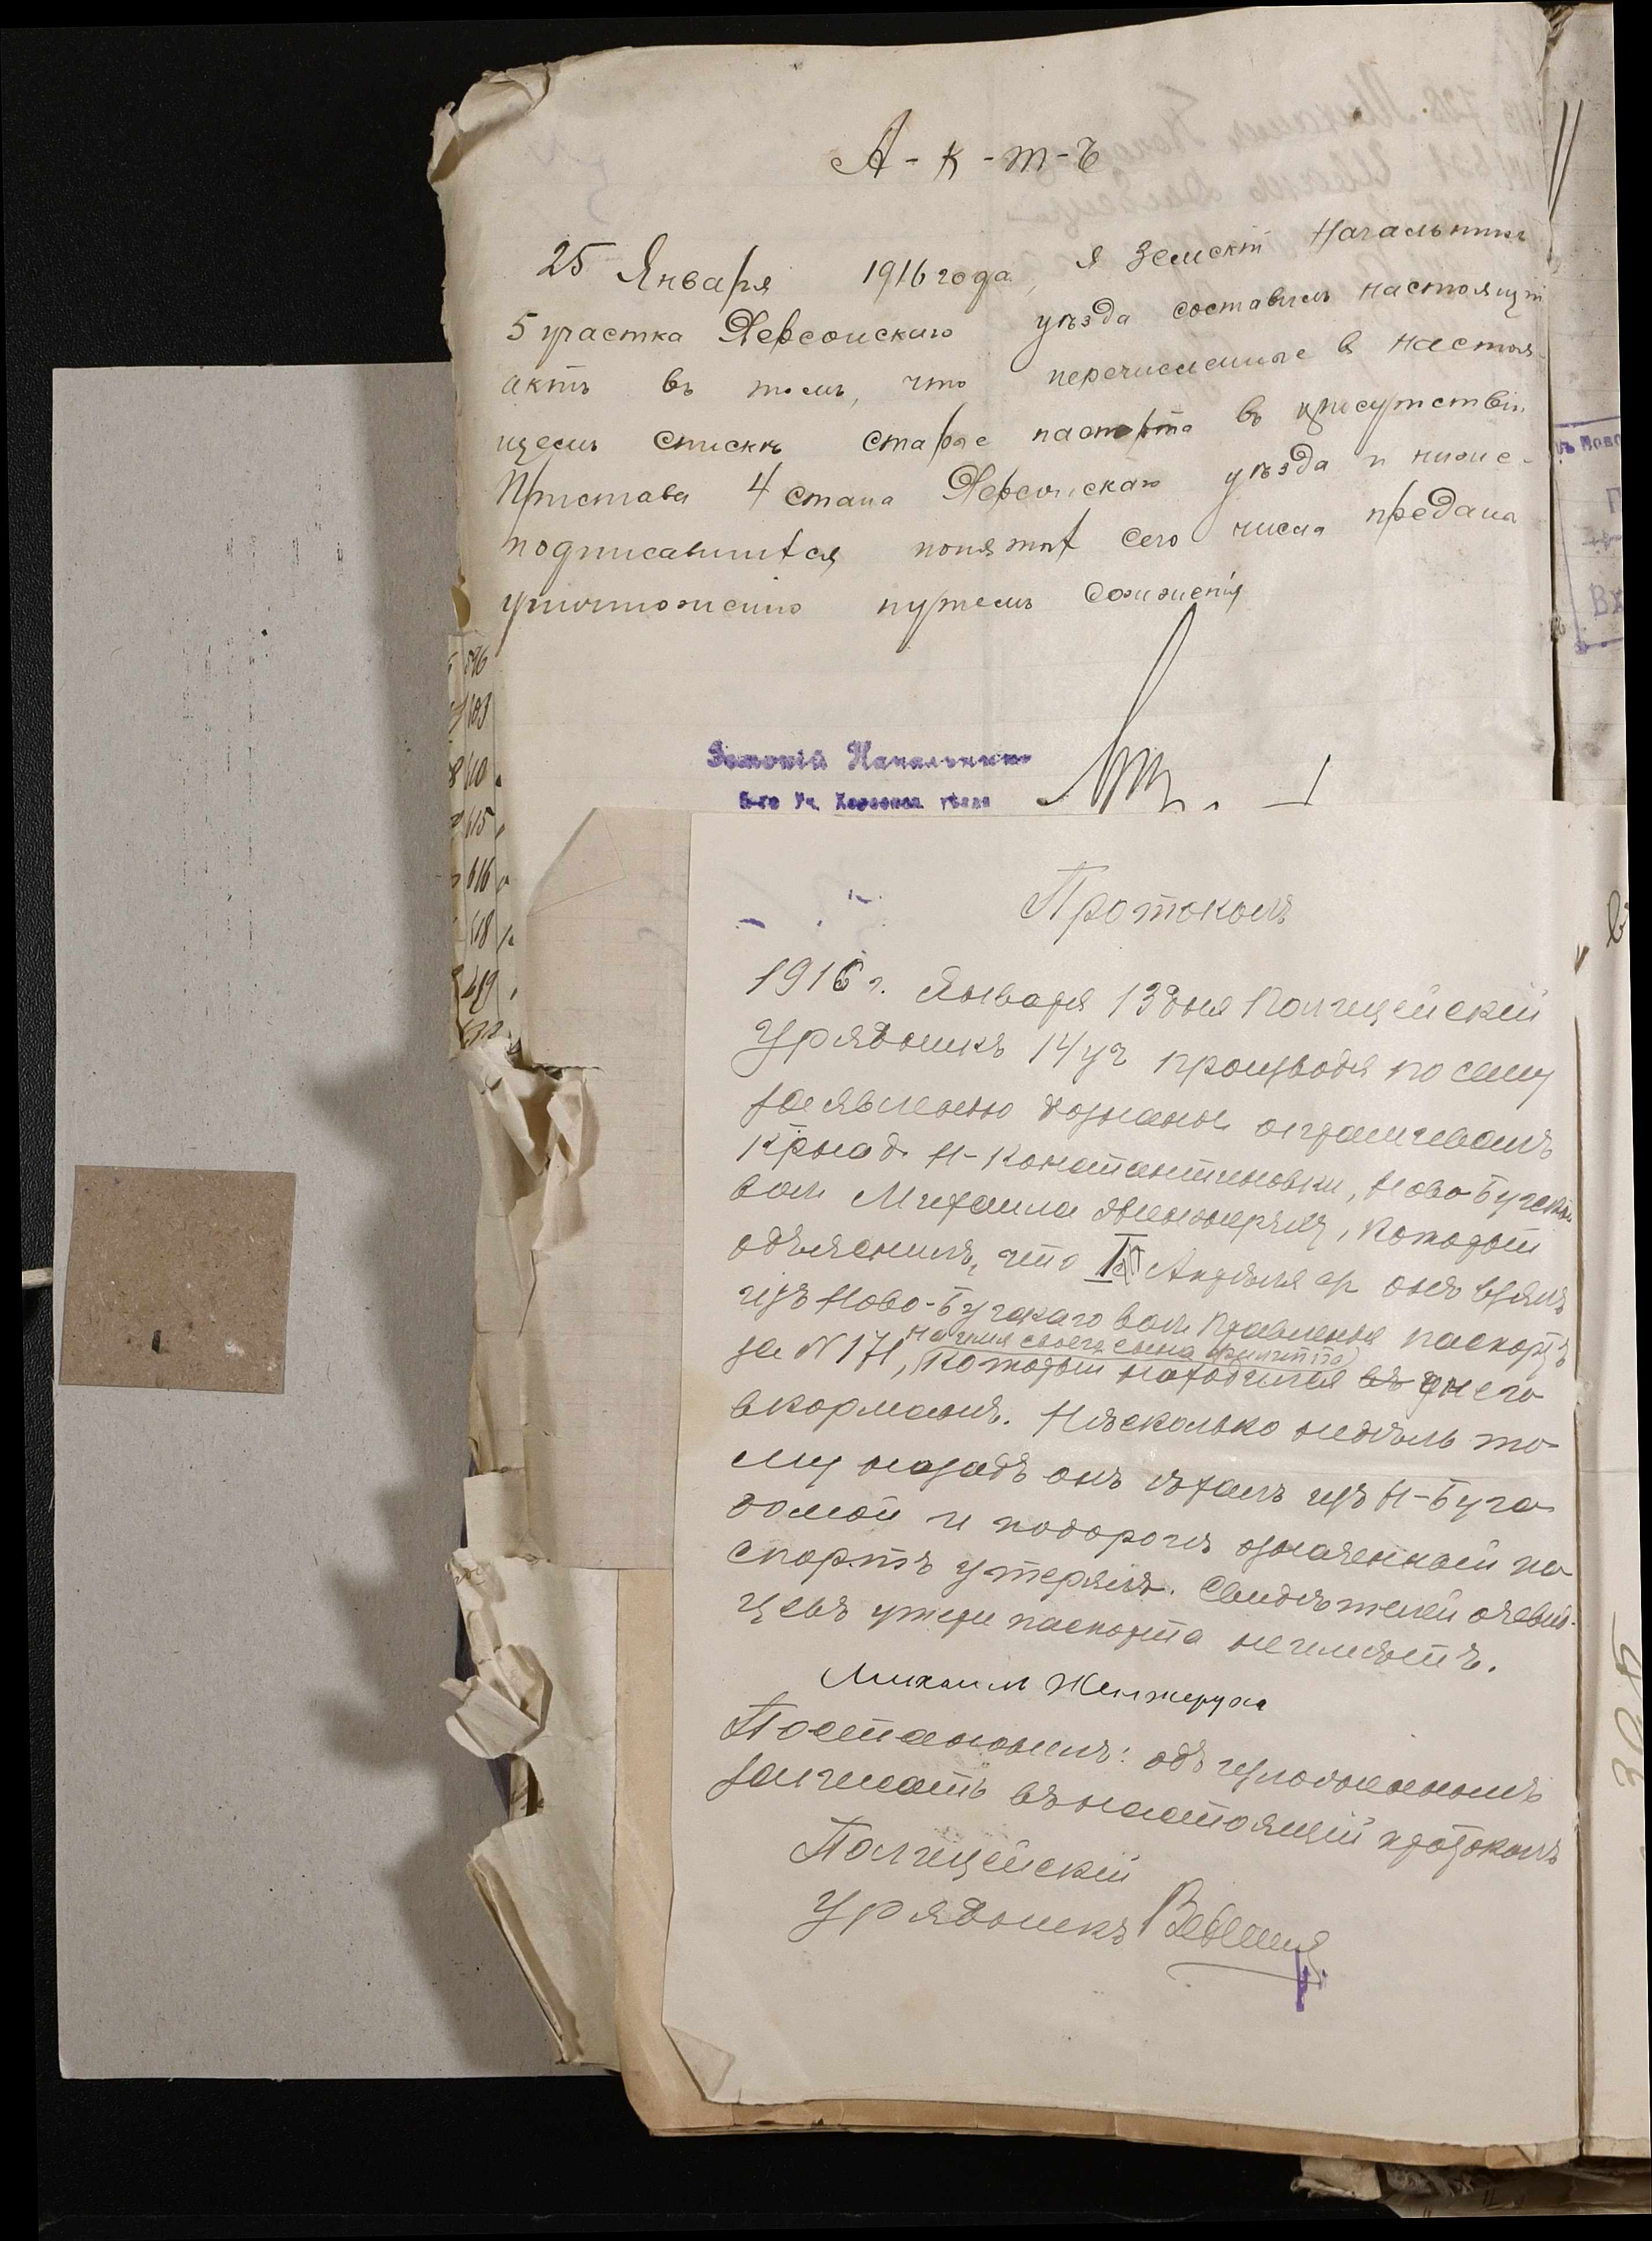 А-к-т-ъ
25 Января 1916 года, я Земскій Начальникъ
5 участка Херсонскаго уѣзда составилъ настоящій
актъ въ томъ, что перечисленные в настоя-
щемъ спискѣ старые паспорта въ присутствіи
Пристава 4 стана Херсонскаго уѣзда и ниже-
подписавшихся понятых сего числа преданы
уничтоженію путемъ сожженія
Земскій Начальникъ
5-го Уч. Херсонск. уѣзда
Протоколъ
1916 г. Января 13 дня Полицейскій
Урядникъ 14 уч производя по сему
заявленію дознаніе опрашивалъ
кр-на д. Н-Константиновки, Ново-Бугской
вол Михаила Женжеруху, который
объяснилъ, что Апрѣля онъ взялъ
изъ Ново-Бугскаго вол Правленія паспортъ
на имя своего сына Филиппа
за N 171, который находился въ у него
вкарманѣ. Нѣсколько недѣль то-
му назадъ онъ ѣхалъ изъ Н-Буга
домой и подорогѣ означенный па-
спортъ утерялъ. Свидѣтелей очевид-
цевъ утери паспорта неимѣетъ.
Михаил Женжеруха
Постановилъ: объ изложенномъ
записать въ настоящій протоколъ
Полицейскій
Урядникъ